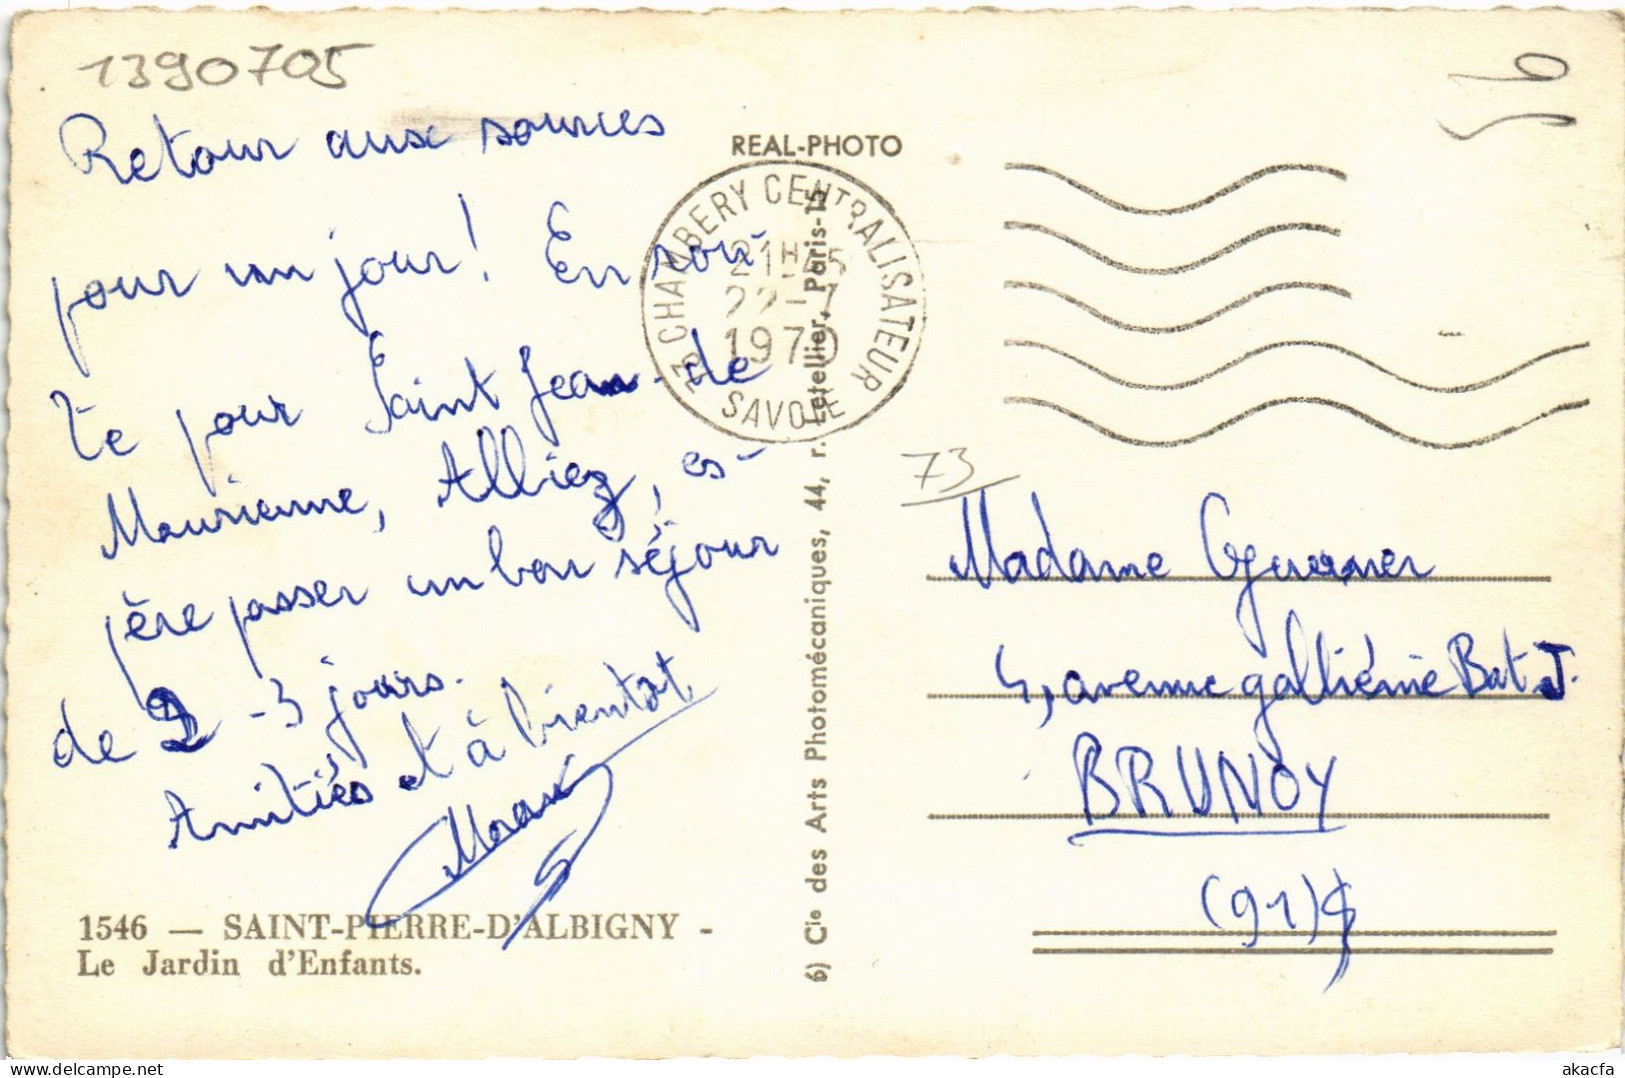 1390705
Retour aux sources
pour un jour! En rou-
te pour Saint Jean-de
Maurienne, Albiez, es-
père passer un bon séjour
de 2-3 jours.
Amitiés et à bientôt
1546 — SAINT-PIERRE-D'ALBIGNY -
Le Jardin d'Enfants.
REAL-PHOTO
73 CHAMBERY CENTRALISATEUR
21H45
22-7
1970
SAVOIE
6) Cie des Arts Photomécaniques, 44, r. Letellier, Paris-15
73
Madame
4, avenue galliéni Bat J.
BRUNOY
(91)
akacfa